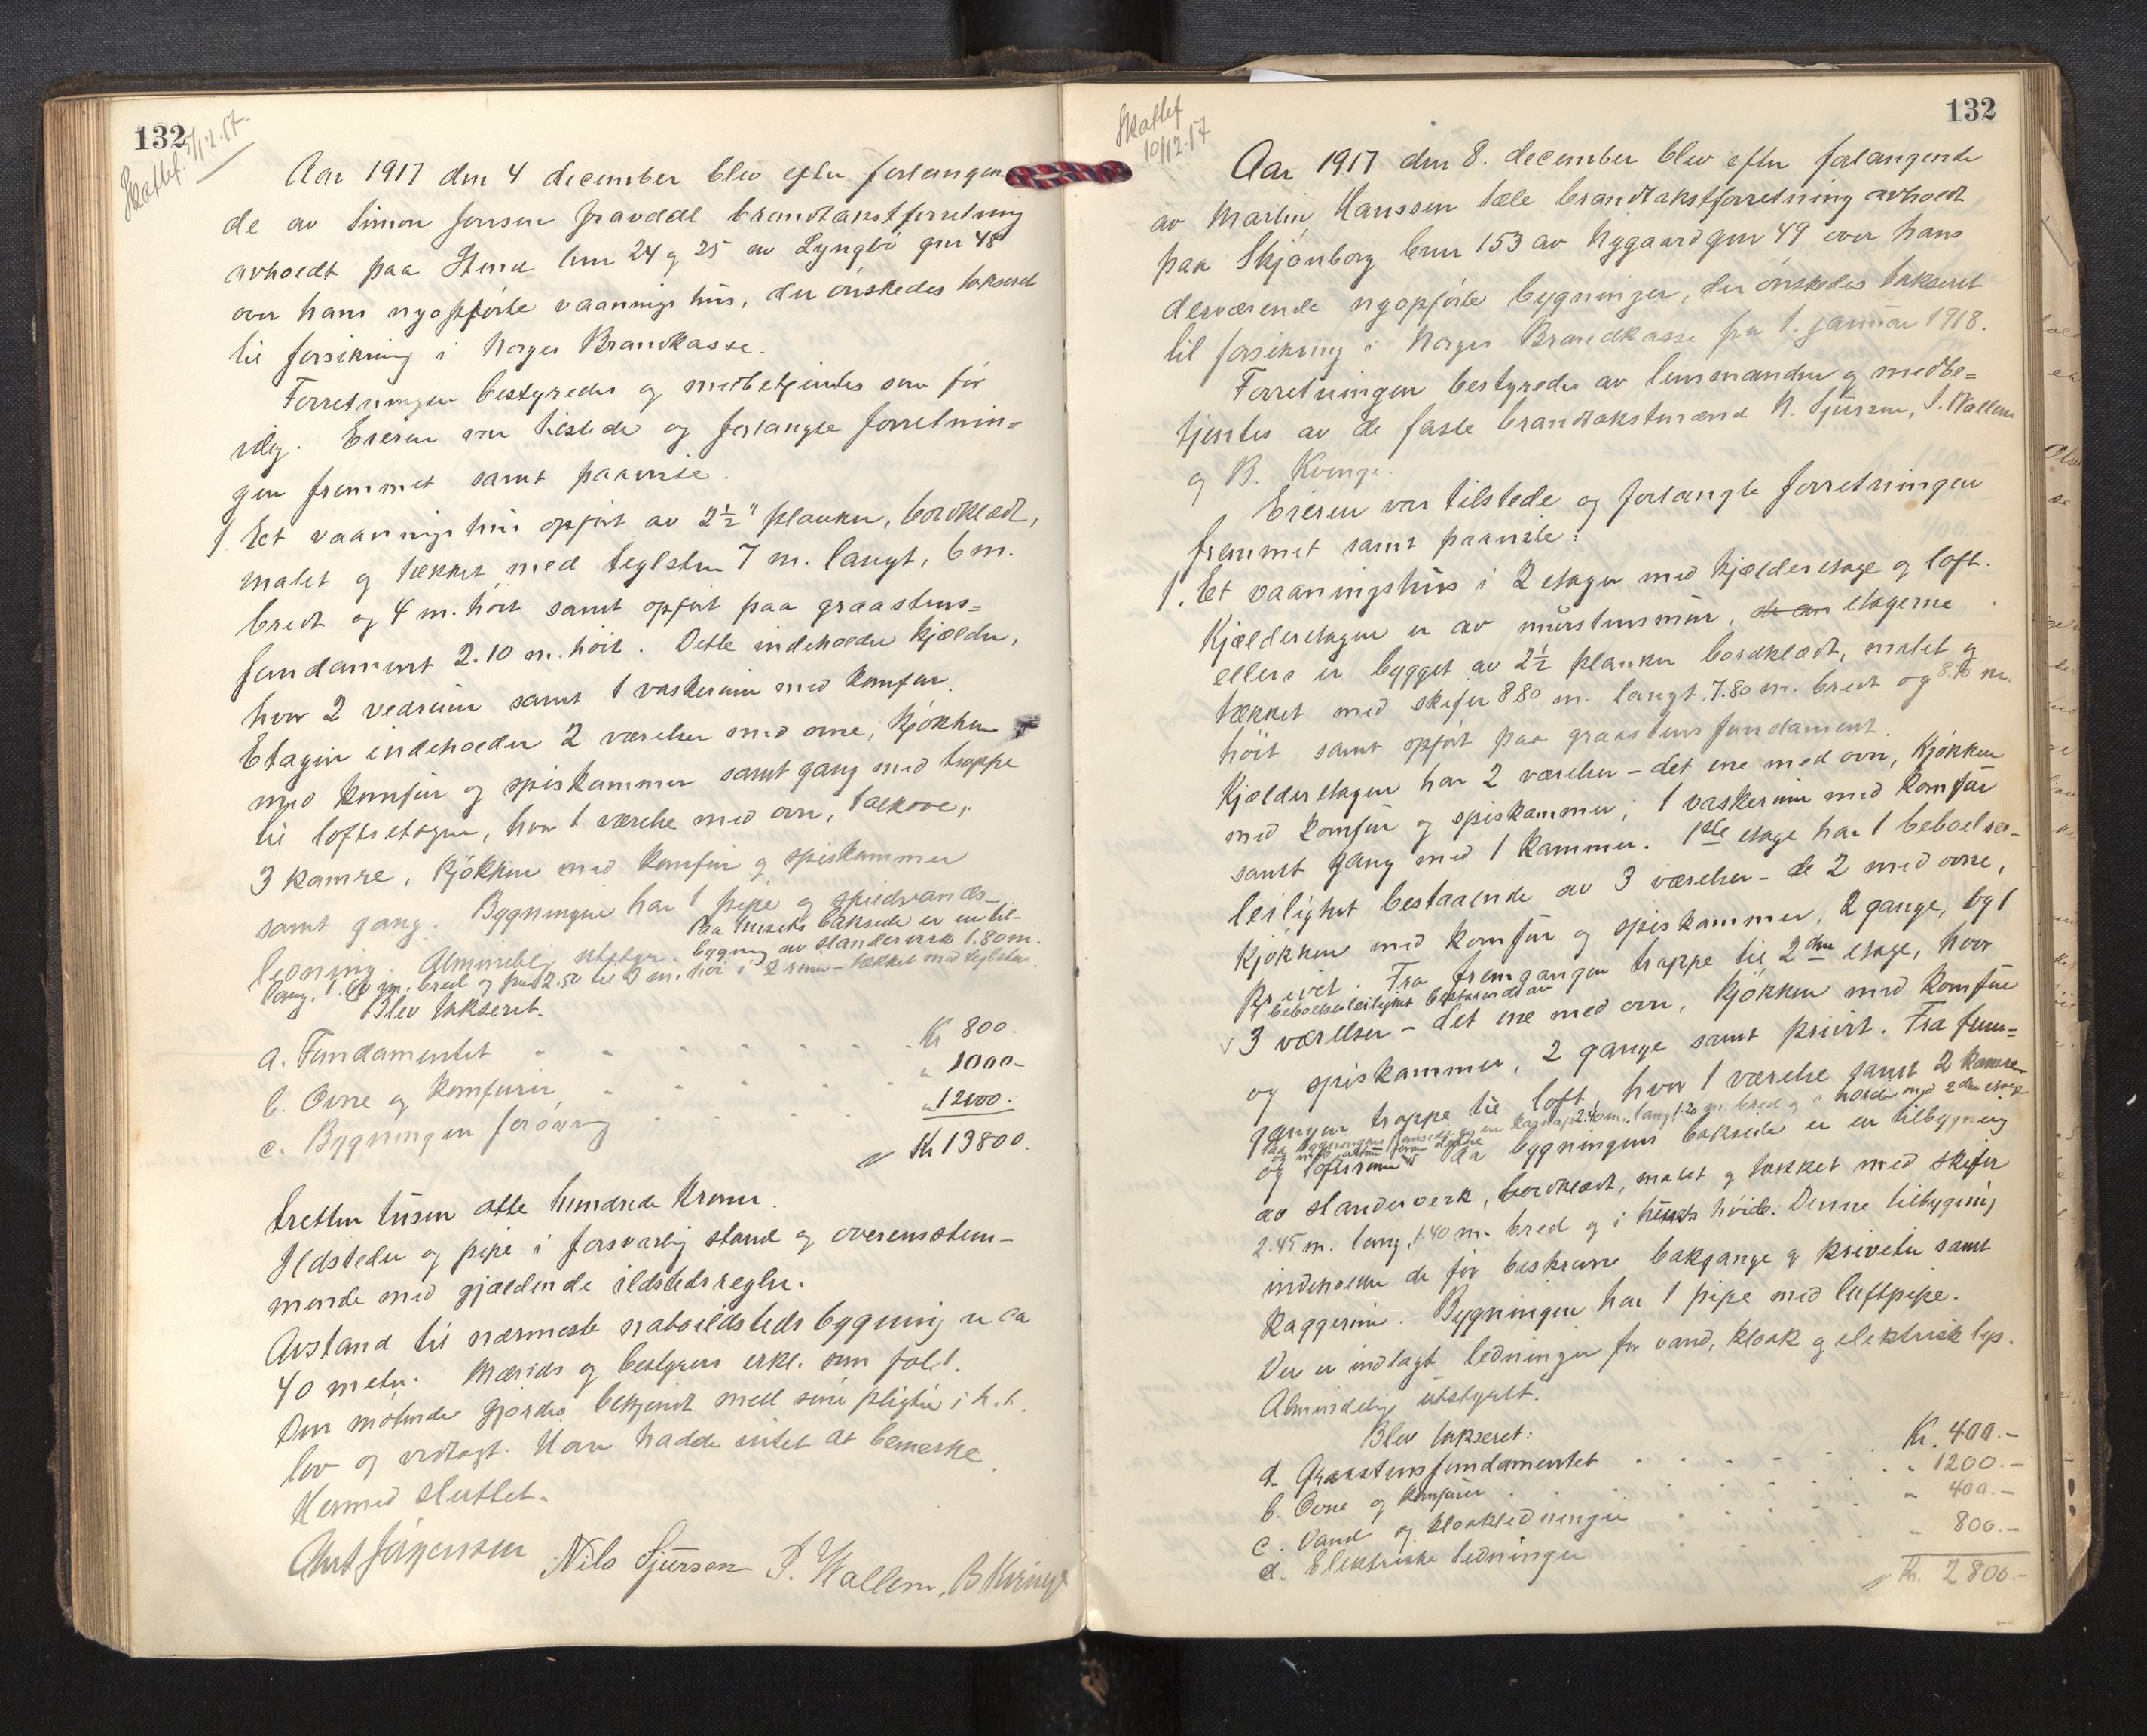 132
Skatbf. 5/12.17.
Aar 1917 den 4 december blev efter forlangen
de av Simon Jonsen Fravddl brandtakstforretning
avholdt paa Stend bnr 24 og 25 av Lyngbö gnr 48
over hans nyopförte vaanings hus, der önskedes takseret
til forsikring i Norges Brandkasse.
Forretningen bestyredes og medbetjentes som för
idag. Eieren var tilstede og forlangte forretnin=
gen fremmet samt paaviste.
1 Et vaanings hus opfört av 2½" planker, bordklædt,
malet og tækket med teglsten 7 m. langt, 6 m.
bredt og 4 m. höit samt opfört paa graastens=
fundament 2.10 m. höit. Dette indeholder kjælder,
hvor 2 vedrum samt 1 vaskerum med komfur.
Etagen indeholder 2 værelser med ovne, kjökken
med komfur og spiskammer samt gang med trappe
til loftsetagen, hvor 1 værelse med ovn, 1 alkove,
3 kamre, kjökken med komfur og spiskammer
samt gang. Bygningen har 1 pipe og spildvands-
ledning. Almindelig utstyr. Paa husets bakside er en til-
bygning av standerverk 1.80 m.
lang, 1.60 m. bred og fra 2.50 til 3 m. höi i 2 rum - tækket med teglsten.
Blev takseret.
a. Fundamentet Kr 800.
b. Ovne og komfurer " 1000-
c. Bygningen forövrig " 12000.
Kr 13800.
tretten tusen otte hundrede kroner.
Ildsteder og pipe i forsvarlig stand og overensstem-
mende med gjældende ildstedsregler.
Avstand til nærmeste naboildsteds bygning er ca
40 meter. Mænds og bestyrers erkl. som fol. 1.
Den mötende gjordes bekjendt med sine pligter i h. t.
lov og vedtægt. Han hadde intet at bemerke.
Hermed sluttet.
Ant Jörgensen Nils Sjursen S. Hallem, B Kvinge
132
Skatbf
10/12.17
Aar 1917 den 8. december blev efter forlangende
av Martin Hanssen Tale brandtakstforretning avholdt
paa Skjönborg bnr 153 av Nygaard gnr 49 over hans
derværende nyopförte bygninger, der önskedes takseret
til forsikring i Norges Brandkasse fra 1. januar 1918.
Forretningen bestyredes av lensmanden og medbe=
tjentes av de faste brandtakstmænd N. Sjursen, S. Hallem
og B. Kvinge.
Eieren var tilstede og forlangte forretningen
fremmet samt paaviste:
1. Et vaaningshus i 2 etager med kjælderetage og loft.
Kjælderetagen er av murstensmur, de an etagerne
ellers er bygget av 2½ planker bordklædt, malet og
tækket med skifer 8 80 m. langt, 7.80 m. bredt og 8.70 m.
höit samt opfört paa graastens fundament.
Kjælderetagen har 2 værelser - det ene med ovn, kjökken
med komfur og spiskammer, 1 vaskerum med komfur
samt gang med 1 kammer. 1ste etage har 1 beboelses-
leilighet bestaaende av 3 værelser - de 2 med ovne,
kjökken med komfur og spiskammer, 2 gange, og 1
privet. Fra fremgangen trappe til 2den etage, hvor
1 beboelsesleilighet bestaaende av
3 værelser - det ene med ovn, kjökken med komfur
og spiskammer, 2 gange samt privet. Fra frem=
gangen trappe til loft, hvor 1 værelse samt 2 kamre
Paa bygningens framside og en karnap 2.40 m. lang, 1.20 m. bred og i höide med 2den etage
og med altan foran denne
og loftsrum Paa bygningens bakside er en tilbygning
av standerverk, bordklædt, malet og tækket med skifer
2.45 m. lang, 1.40 m. bred og i husets höide. Denne tilbygning
indeholder de för beskrevne bakgange og priveter samt
kaggerum. Bygningen har 1 pipe med luftpipe.
Der er indlagt ledninger for vand, kloak og elektrisk lys.
Almindelig utstyrt.
Blev takseret:
a. Graastensfundamentet Kr. 400.-
b. Ovne og komfurer " 1200.-
c. Vand og kloakledninger " 400.-
d. Elektriske ledninger " 800.-
Kr. 2800.-